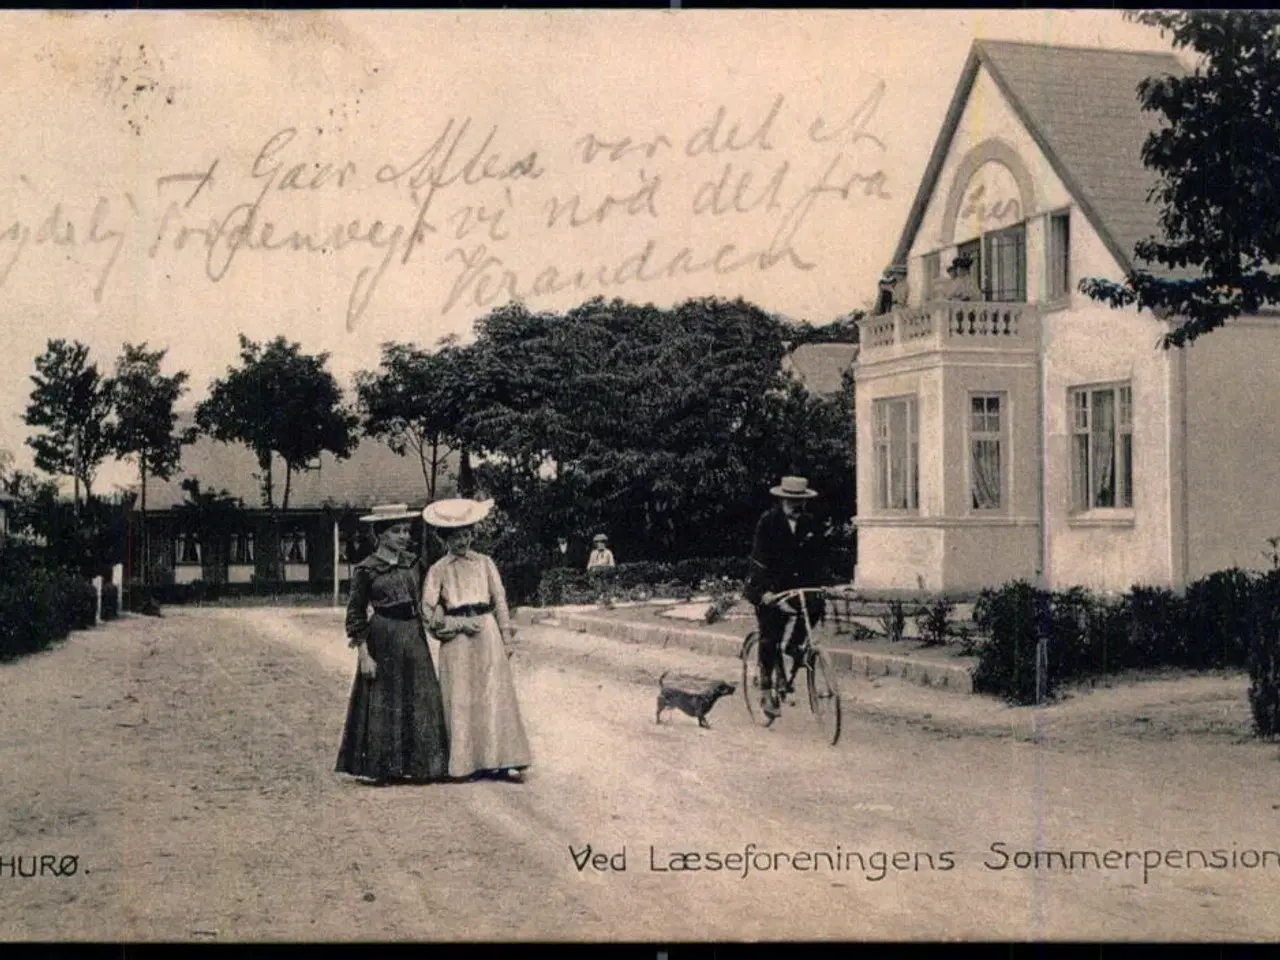 + Gaar Aftes var det et
ydelij Tordenvejr vi nød det fra
Verandaen
her
HURØ.
Ved Læseforeningens Sommerpension